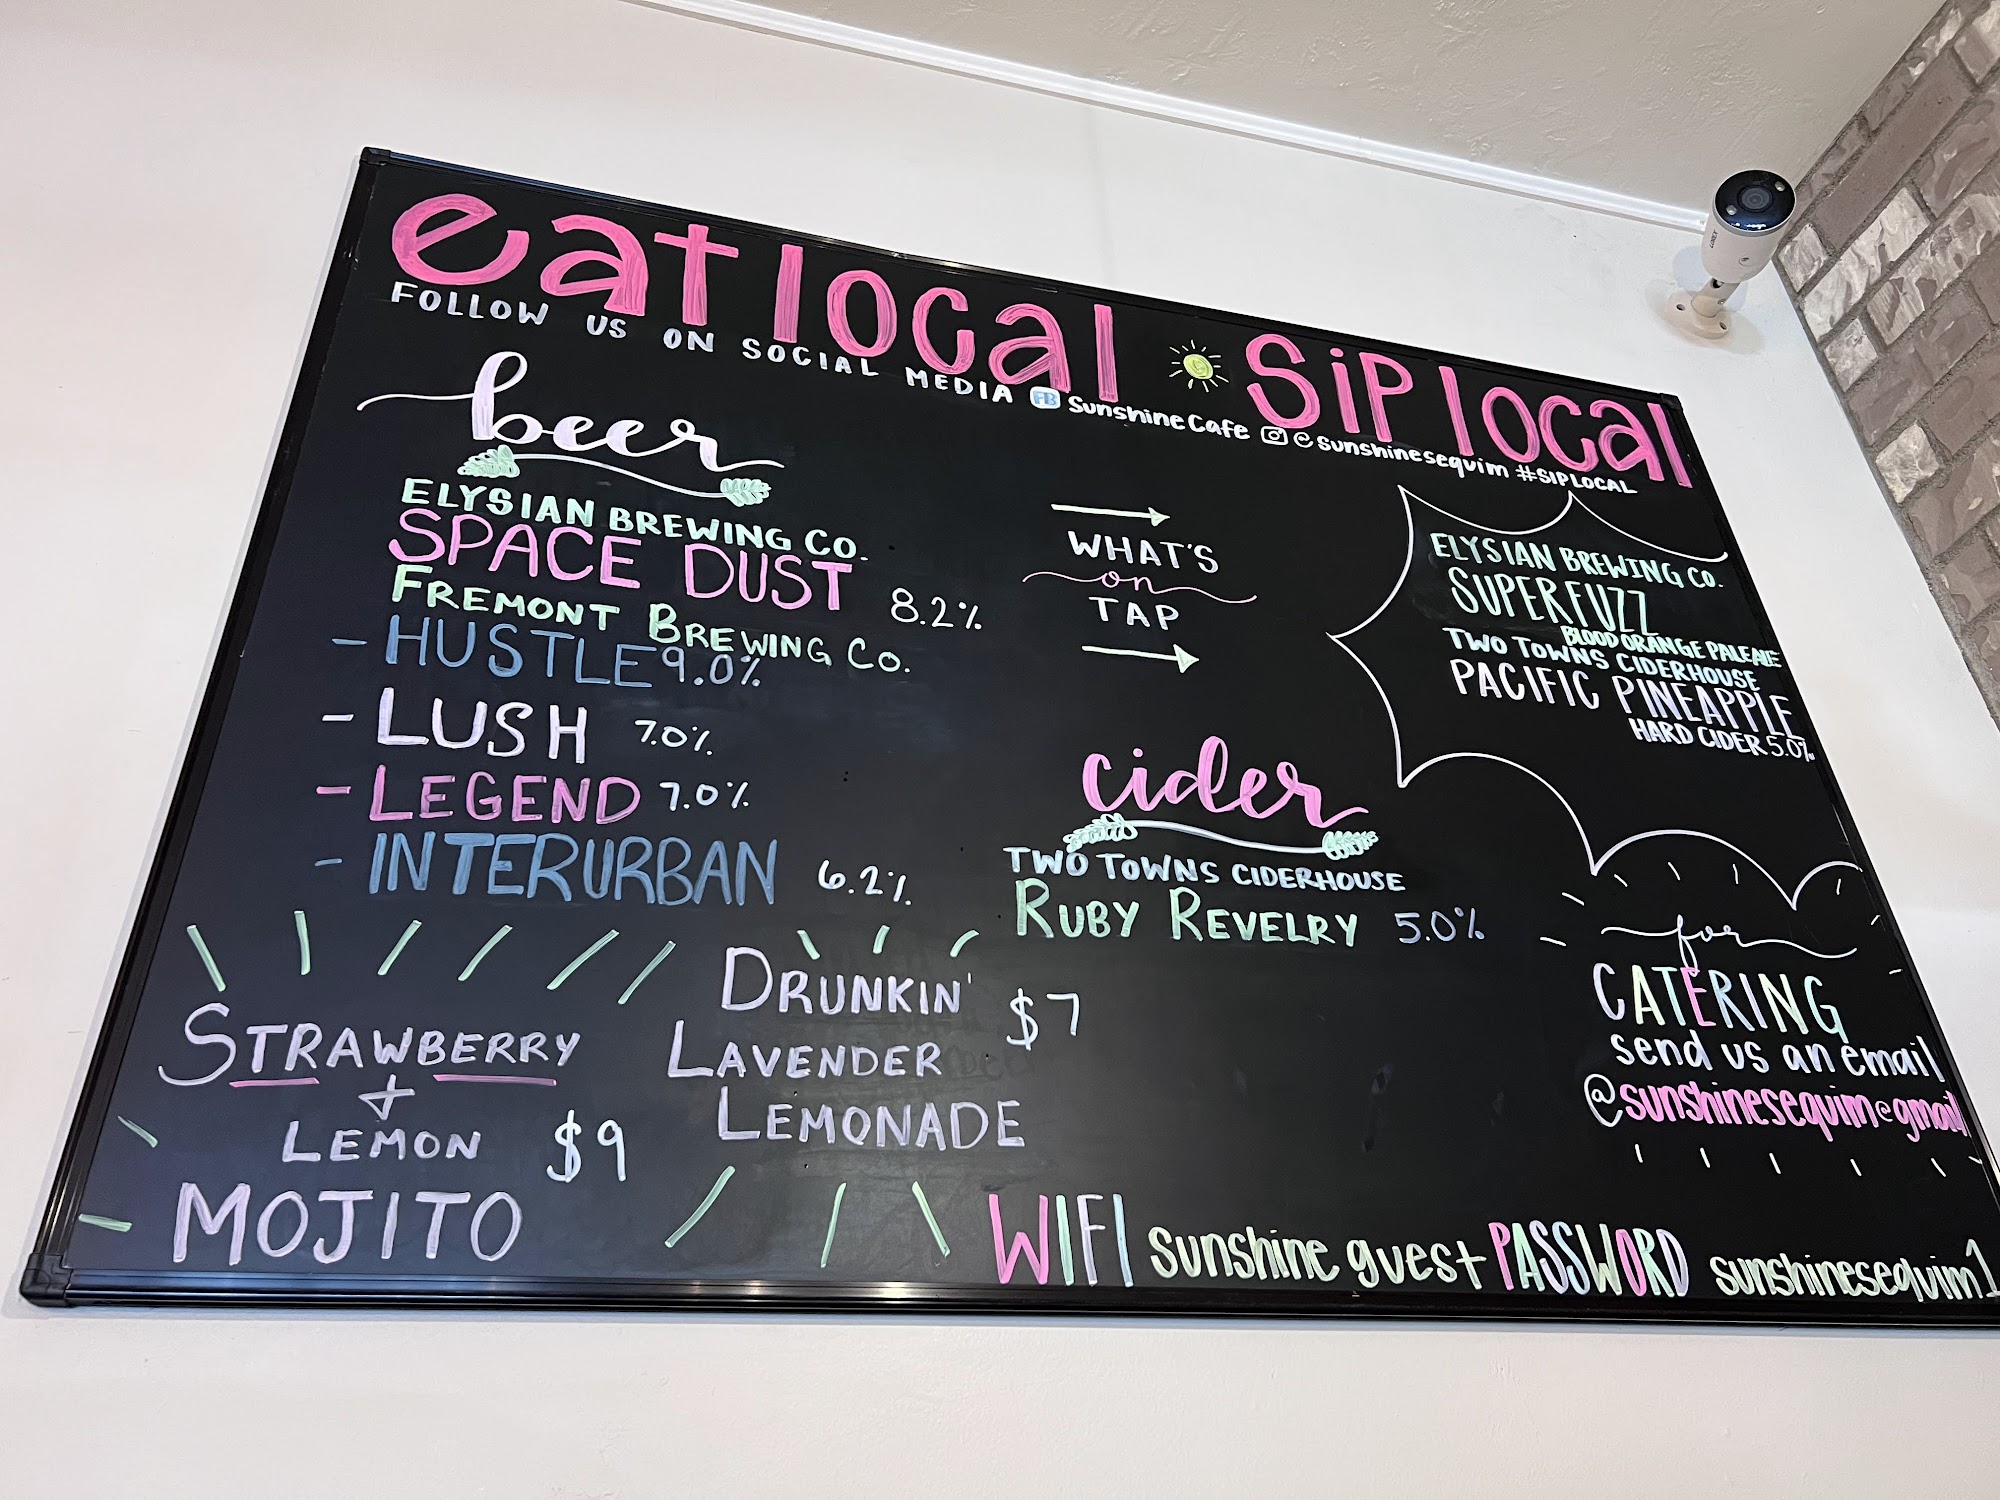 eat local Sip local
FOLLOW US ON SOCIAL MEDIA FB Sunshine Cafe @sunshinesequim #SIPLOCAL
beer
ELYSIAN BREWING CO.
SPACE DUST 8.2%
FREMONT BREWING CO.
- HUSTLE 9.0%
- LUSH 7.0%
- LEGEND 7.0%
- INTERURBAN 6.2%
WHAT'S
on
TAP
ELYSIAN BREWING CO.
SUPERFUZZ
BLOOD ORANGE PALE ALE
TWO TOWNS CIDERHOUSE
PACIFIC PINEAPPLE
HARD CIDER 5.0%
cider
TWO TOWNS CIDERHOUSE
RUBY REVELRY 5.0%
STRAWBERRY
+
LEMON $9
MOJITO
DRUNKIN' $7
LAVENDER
LEMONADE
for
CATERING
send us an email
@sunshinesequim@gmail
WIFI sunshine guest PASSWORD sunshinesequim1
LOREX